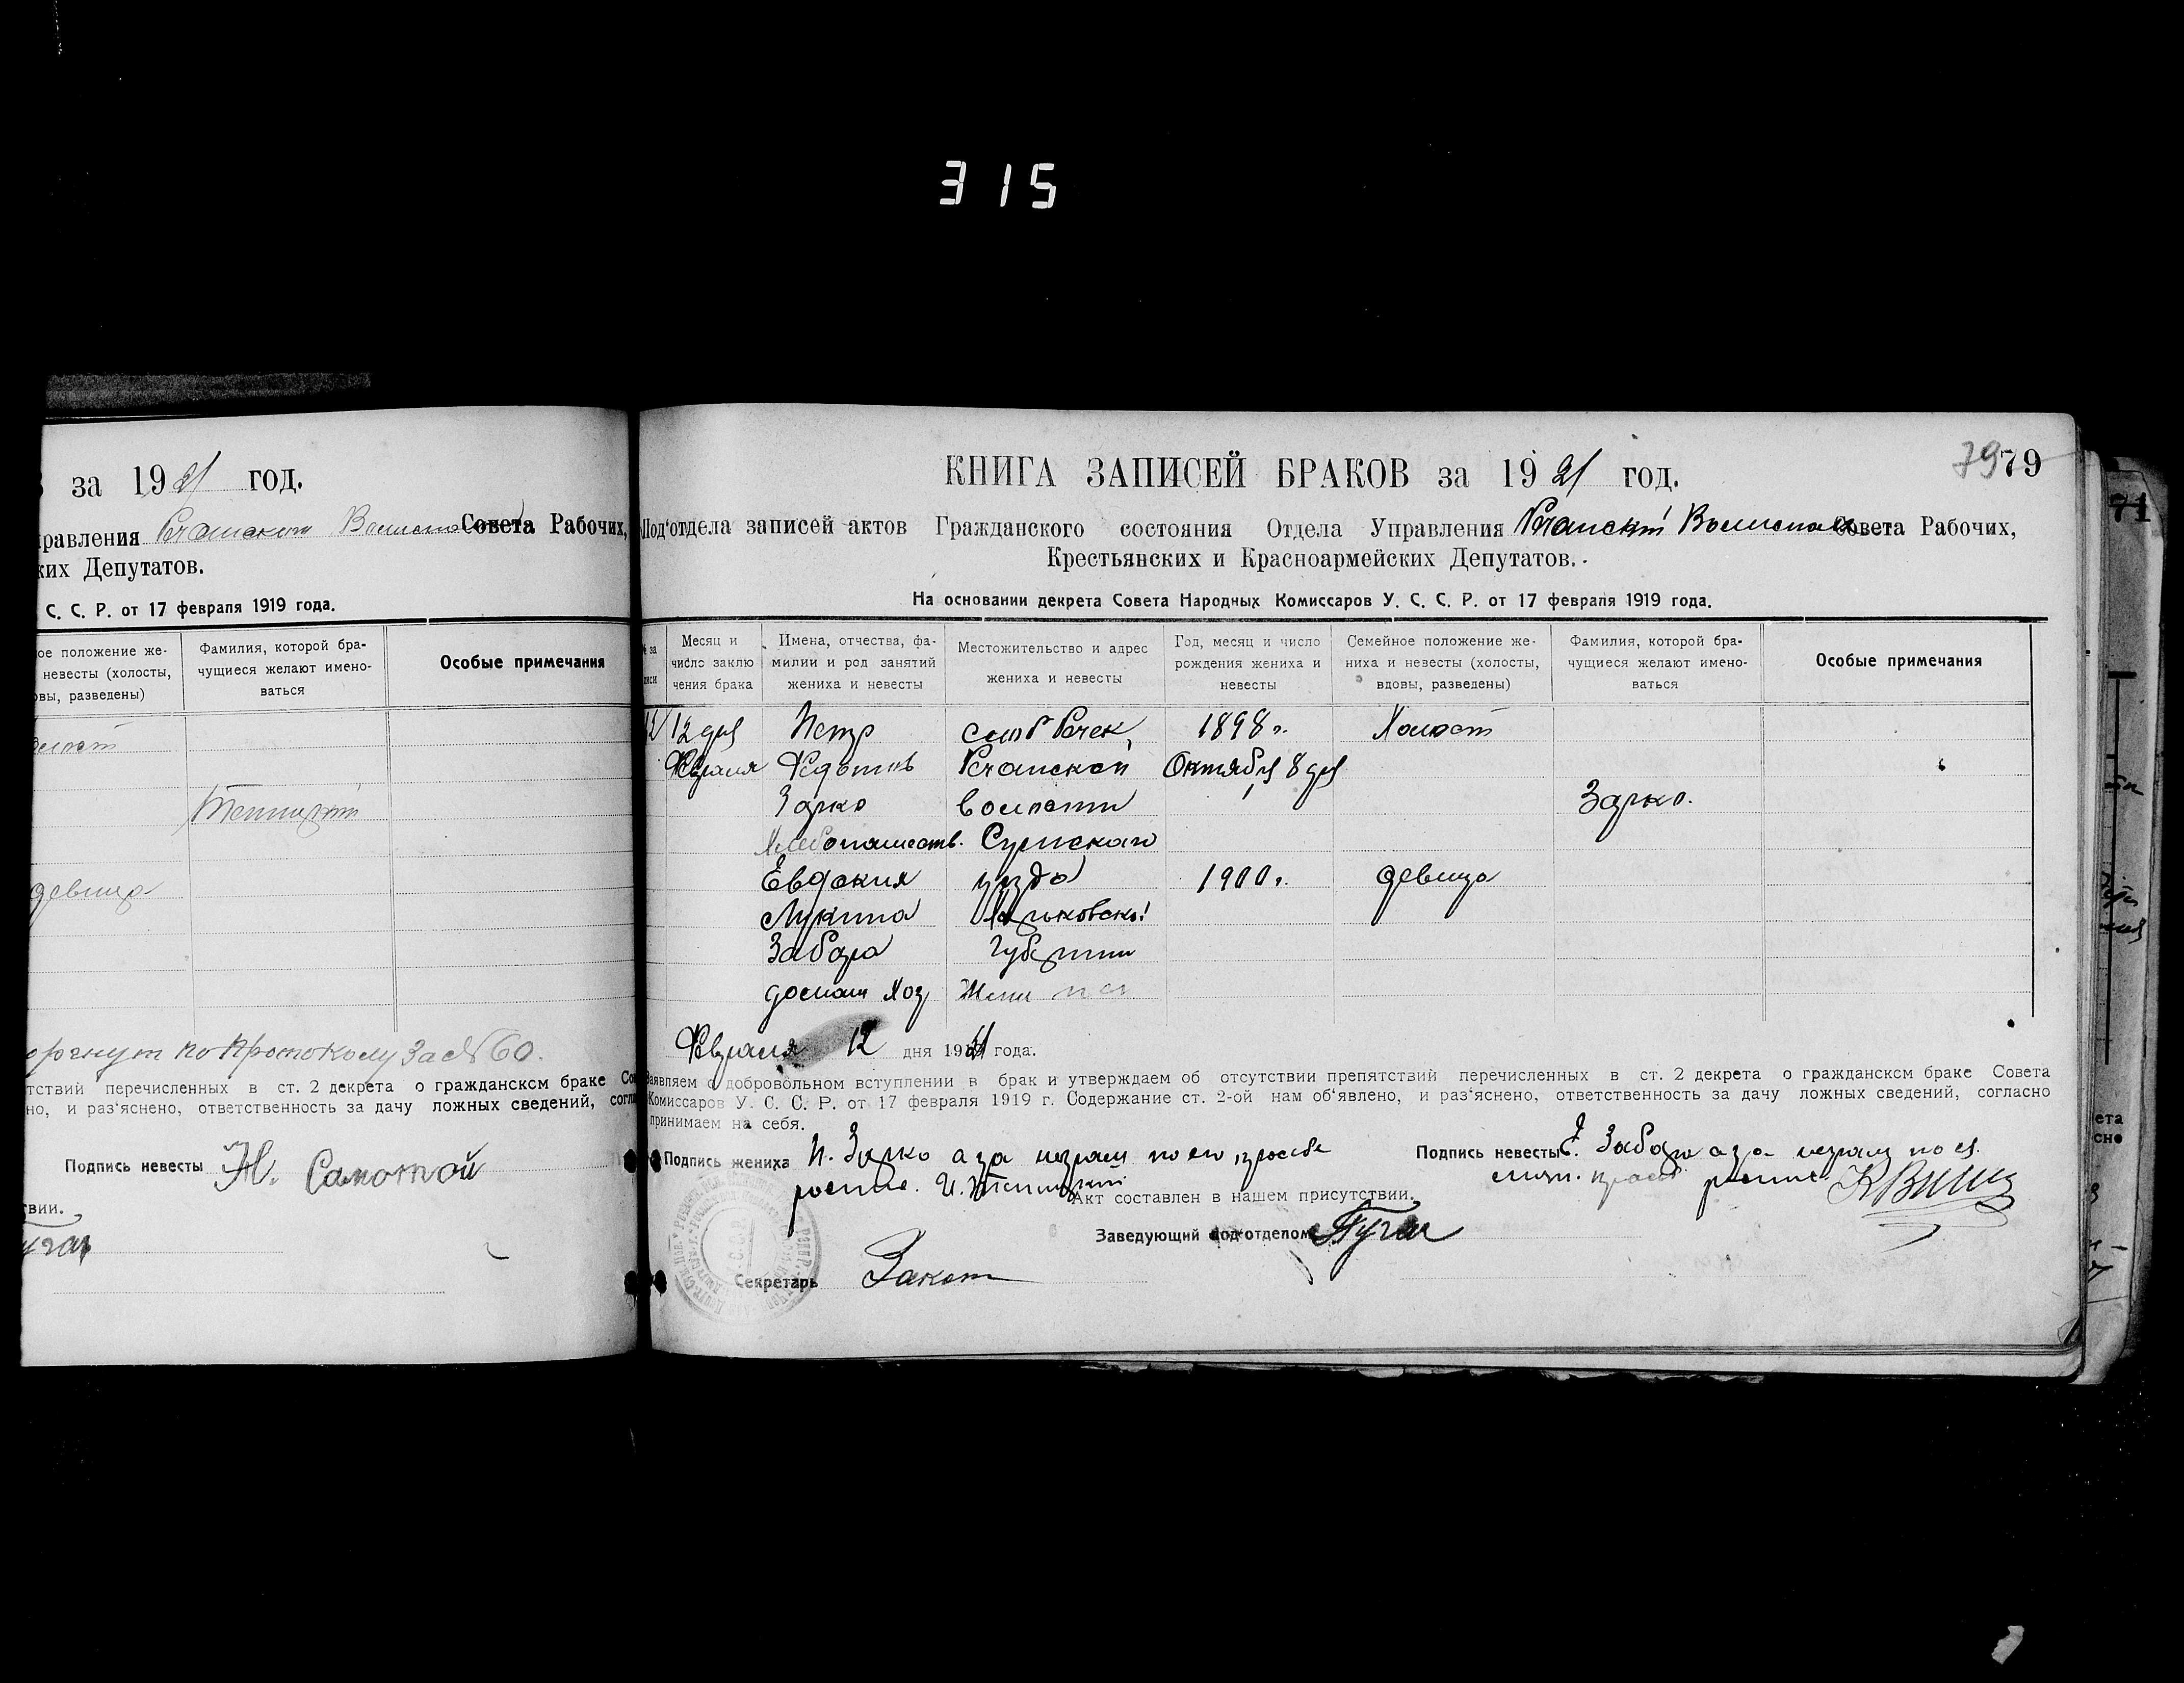 315
за 1921 год.
правления Речанского Волисполкома Совета Рабочих,
ких Депутатов.
С. С. Р. от 17 февраля 1919 года.
ое положение же-
невесты (холосты,
овы, разведены)
Фамилия, которой бра-
чущиеся желают имено-
ваться
Особые примечания
девица
по протоколу за № 60.
тствий перечисленных в ст. 2 декрета о гражданском браке Сов
но, и раз'яснено, ответственность за дачу ложных сведений, согла
Подпись невесты Н.
вии.
КНИГА ЗАПИСЕЙ БРАКОВ за 1921 год.
79 79
Под'отдела записей актов Гражданского состояния Отдела Управления Речанский Волисполком Совета Рабочих,
Крестьянских и Красноармейских Депутатов.
На основании декрета Совета Народных Комиссаров У. С. С. Р. от 17 февраля 1919 года.
№ за
писи
Месяц и
число заклю
чения брака
Имена, отчества, фа-
милии и род занятий
жениха и невесты
Местожительство и адрес
жениха и невесты
Год, месяц и число
рождения жениха и
невесты
Семейное положение же-
ниха и невесты (холосты,
вдовы, разведены)
Фамилия, которой бра-
чущиеся желают имено-
ваться
Особые примечания
12 дня Петр Речек 1898 г. Холост
Февраля Федотов Речанской Октября 8 дня
Зарко волости Зарко.
Хлебопашеств. Сумского
Евдокия уезда 1900 г. девица
Лукина Харьковской
Забара Губернии
домаш хоз
Февраля 12 дня 1921 года.
Заявляем о добровольном вступлении в брак и утверждаем об отсутствии препятствий перечисленных в ст. 2 декрета о гражданском браке Совета
Комиссаров У. С. С. Р. от 17 февраля 1919 г. Содержание ст. 2-ой нам об'явлено, и раз'яснено, ответственность за дачу ложных сведений, согласно
принимаем на себя.
Подпись жениха П. Зарко а за неграм по его просьбе
Подпись невесты Е. Забара а за неграм по ея
Акт составлен в нашем присутствии.
Заведующий под'отделом
Секретарь
71